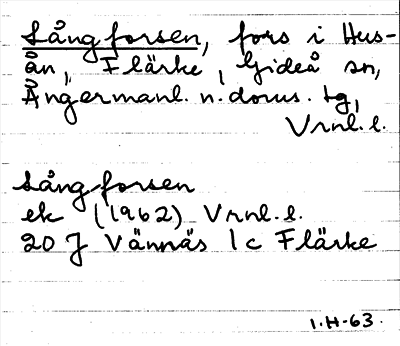 Långforsen, fors i Hus-
ån, Flärke, Gideå sn,
Ångermanl. n. doms. tg,
Vrnl. l.
Långforsen
ek (1962) Vrnl. l.
20 J Vännäs 1c Flärke
I.H-63.